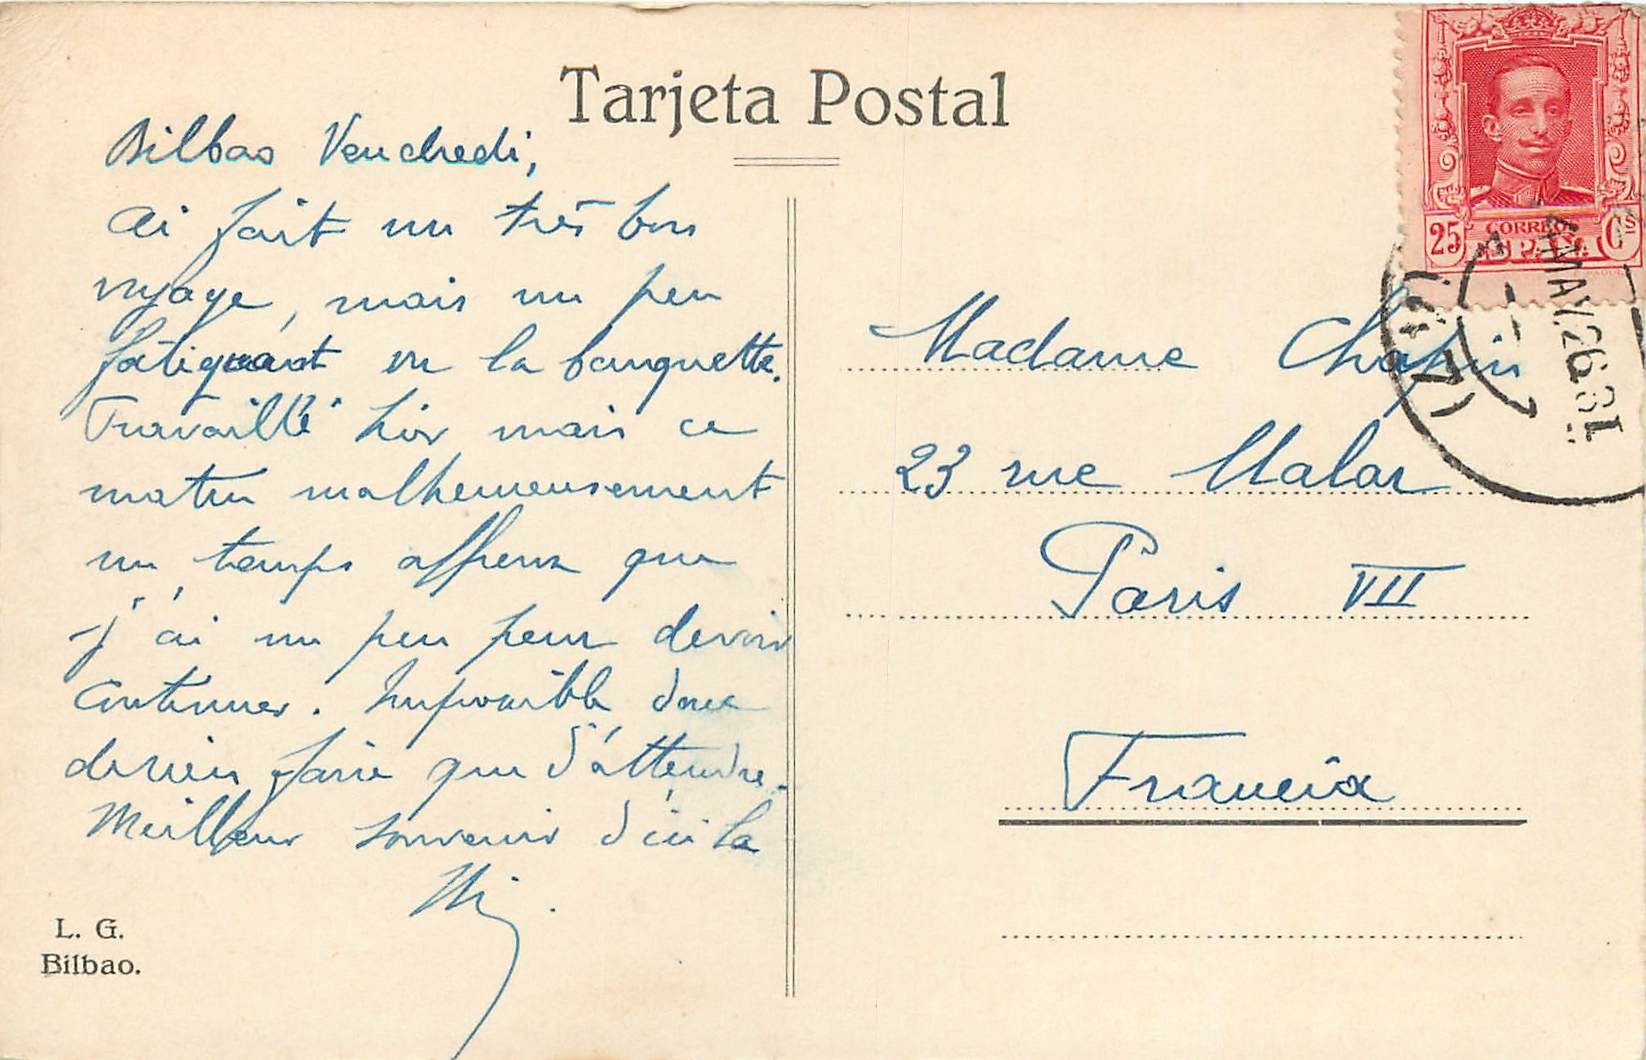 Tarjeta Postal
Bilbao Vendredi,
ai fait un très bon
voyage, mais un peu
fatiguant vu la banquette.
Travaillé hier mais ce
matin malheureusement
un temps affreux que
j'ai un peu peur devoir
continuer. Impossible donc
de rien faire que d'attendre.
Meilleur souvenir d'ici là
L. G.
Bilbao.
25 CORREOS Cs
ESPAÑA
4 MAY.26.
Madame Chapin
23 rue Malar
Paris VII
Francia